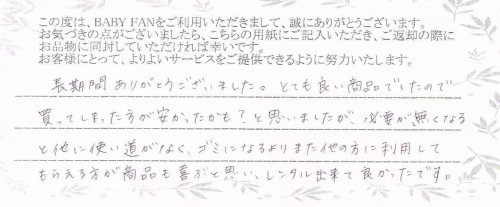 この度は、BABY FANをご利用いただきまして、誠にありがとうございます。
お気づきの点がございましたら、こちらの用紙にご記入いただき、ご返却の際に
お品物に同封していただければ幸いです。
お客様にとって、よりよいサービスをご提供できるように努力いたします。
長期間ありがとうございました。とても良い商品でしたので
買ってしまった方が安かったかも？と思いましたが、必要が無くなる
と他に使い道がなく、ゴミになるよりまた他の方に利用して
もらえる方が商品も喜ぶと思い、レンタル出来て良かったです。